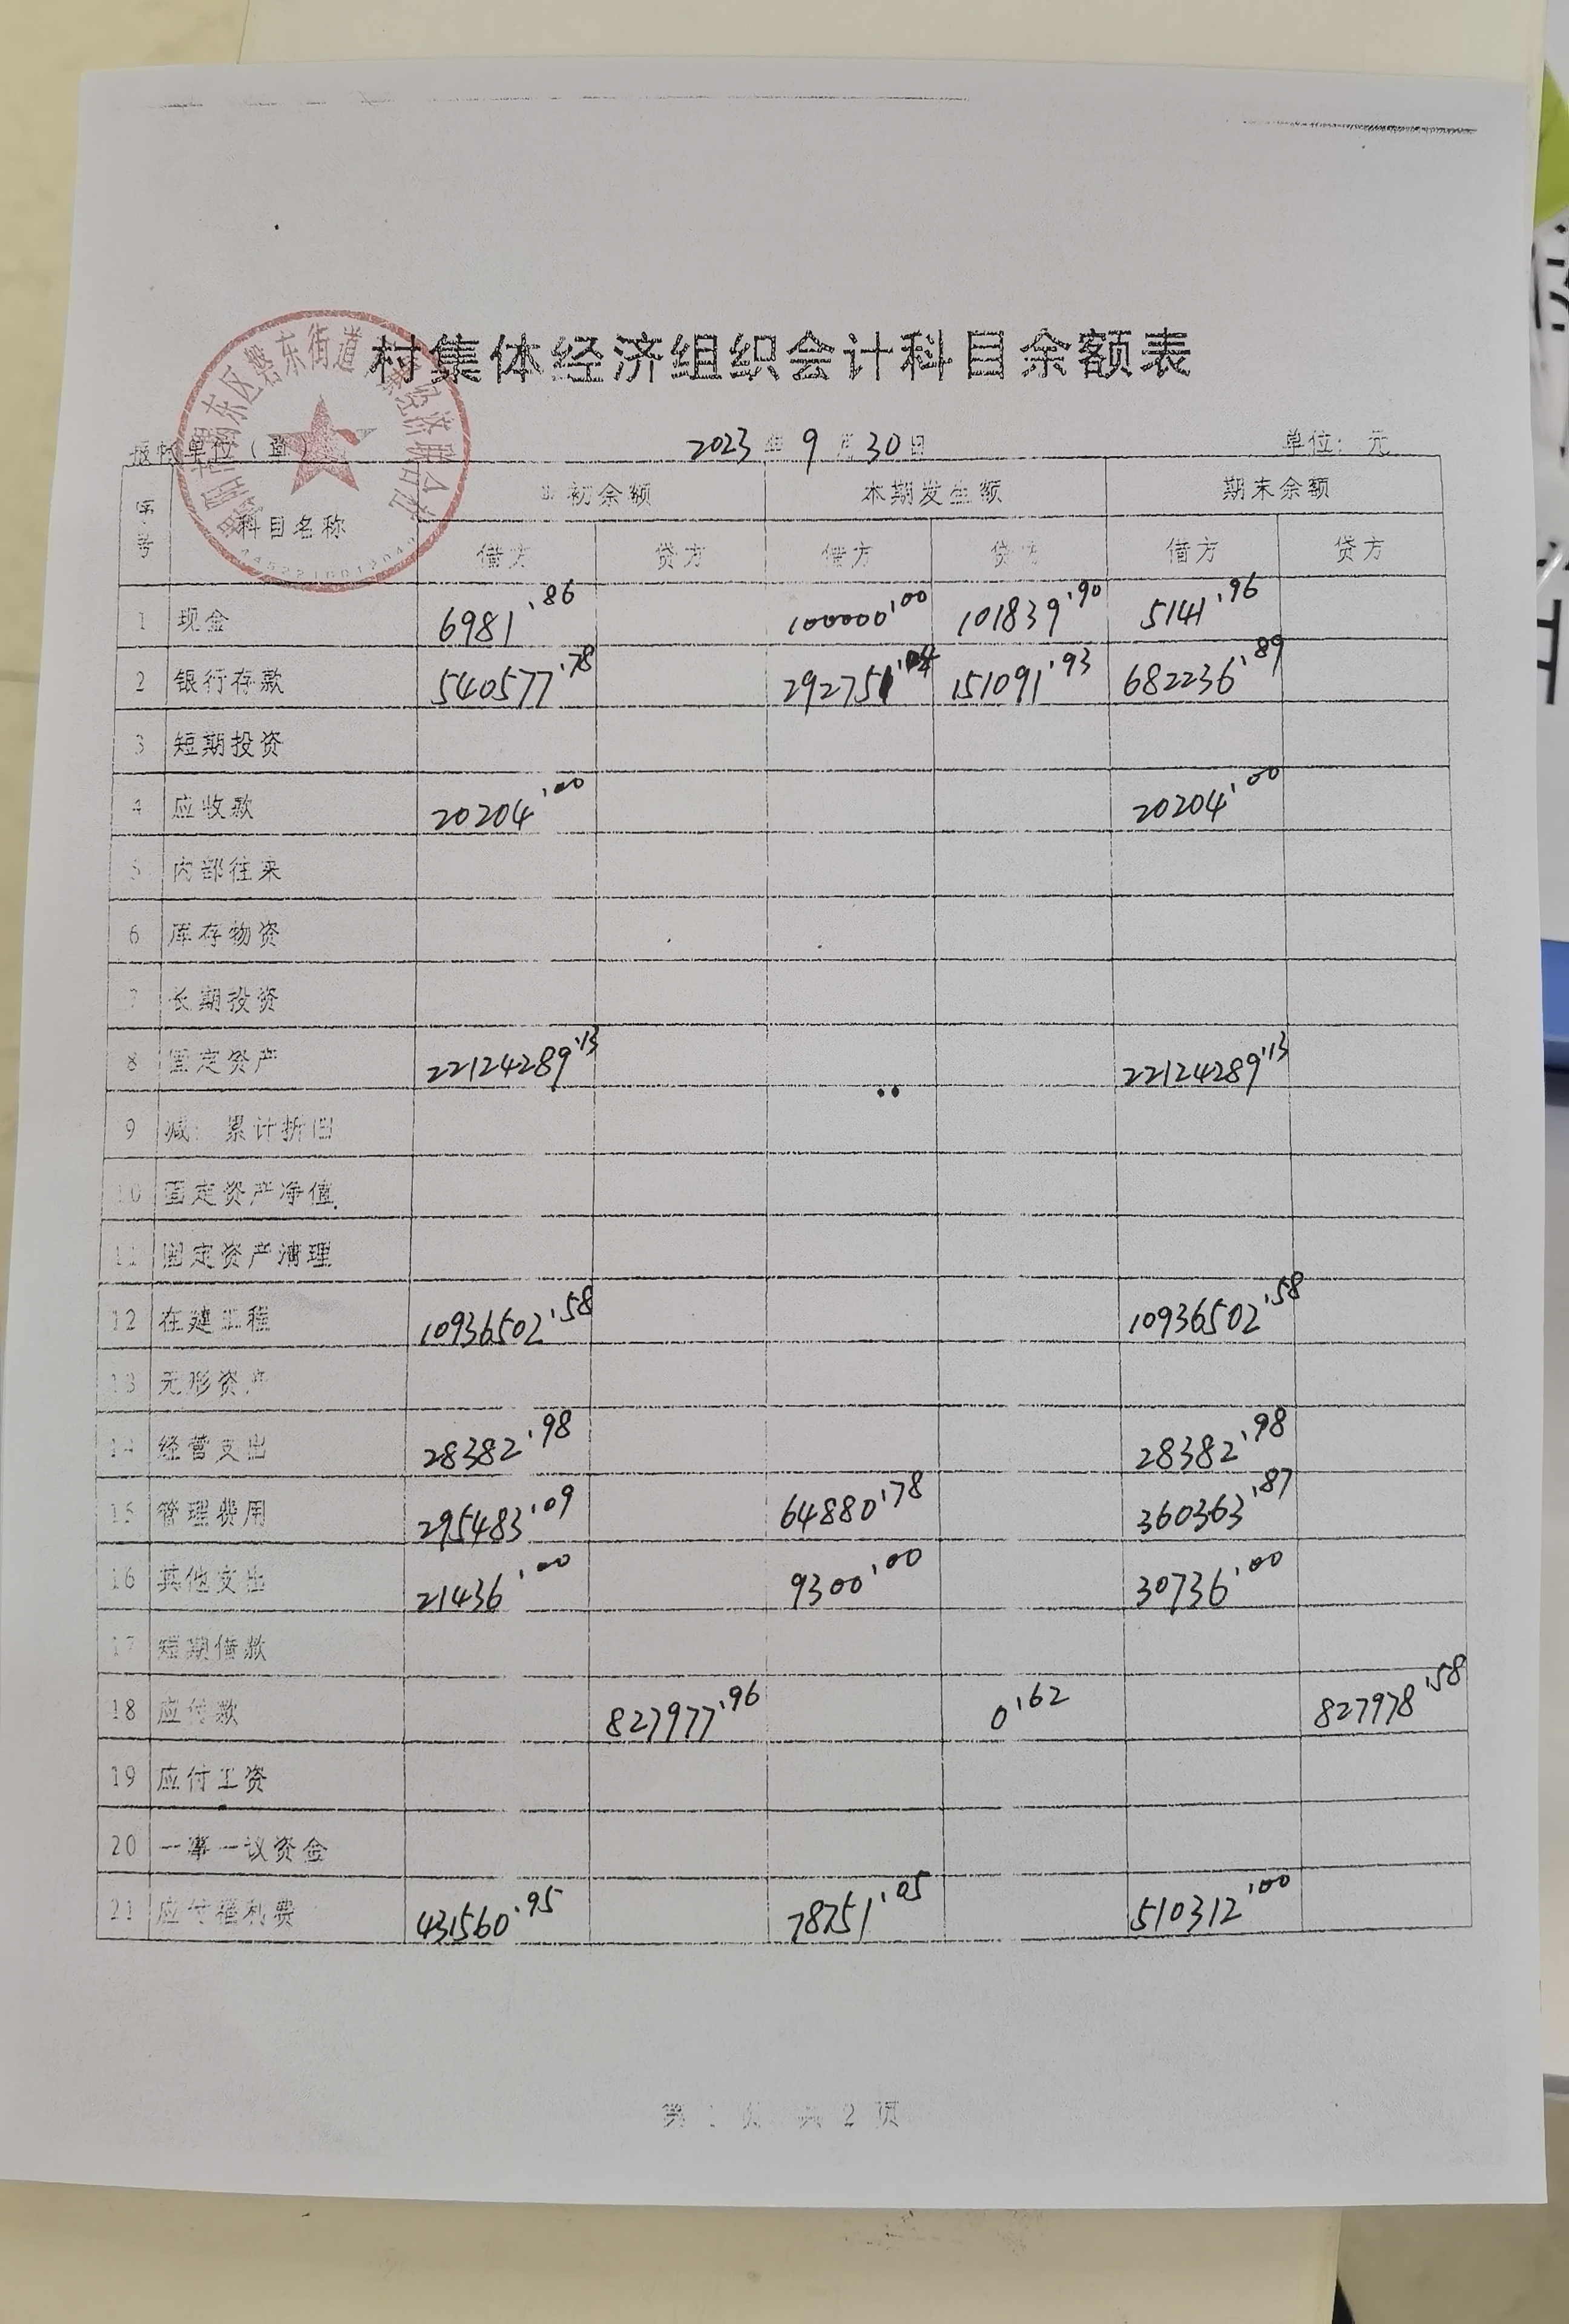 村集体经济组织会计科目余额表
揭阳市揭东区磐东街道 经济联合社
报帐单位（盖） 2023年9月30日 单位：元
序号 科目名称 期初余额 本期发生额 期末余额
借方 贷方 借方 贷方 借方 贷方
1 现金 6981.86 100000.00 101839.90 5141.96
2 银行存款 540577.78 292751.04 151091.93 682236.89
3 短期投资
4 应收款 20204.00 20204.00
5 内部往来
6 库存物资
7 长期投资
8 固定资产 22124289.13 22124289.13
9 减：累计折旧
10 固定资产净值
11 固定资产清理
12 在建工程 10936502.58 10936502.58
13 无形资产
14 经营支出 28382.98 28382.98
15 管理费用 295483.09 64880.78 360363.87
16 其他支出 21436.00 9300.00 30736.00
17 短期借款
18 应付款 827977.96 0.62 827978.58
19 应付工资
20 一事一议资金
21 应付福利费 431560.95 78751.05 510312.00
第 1 页 共 2 页